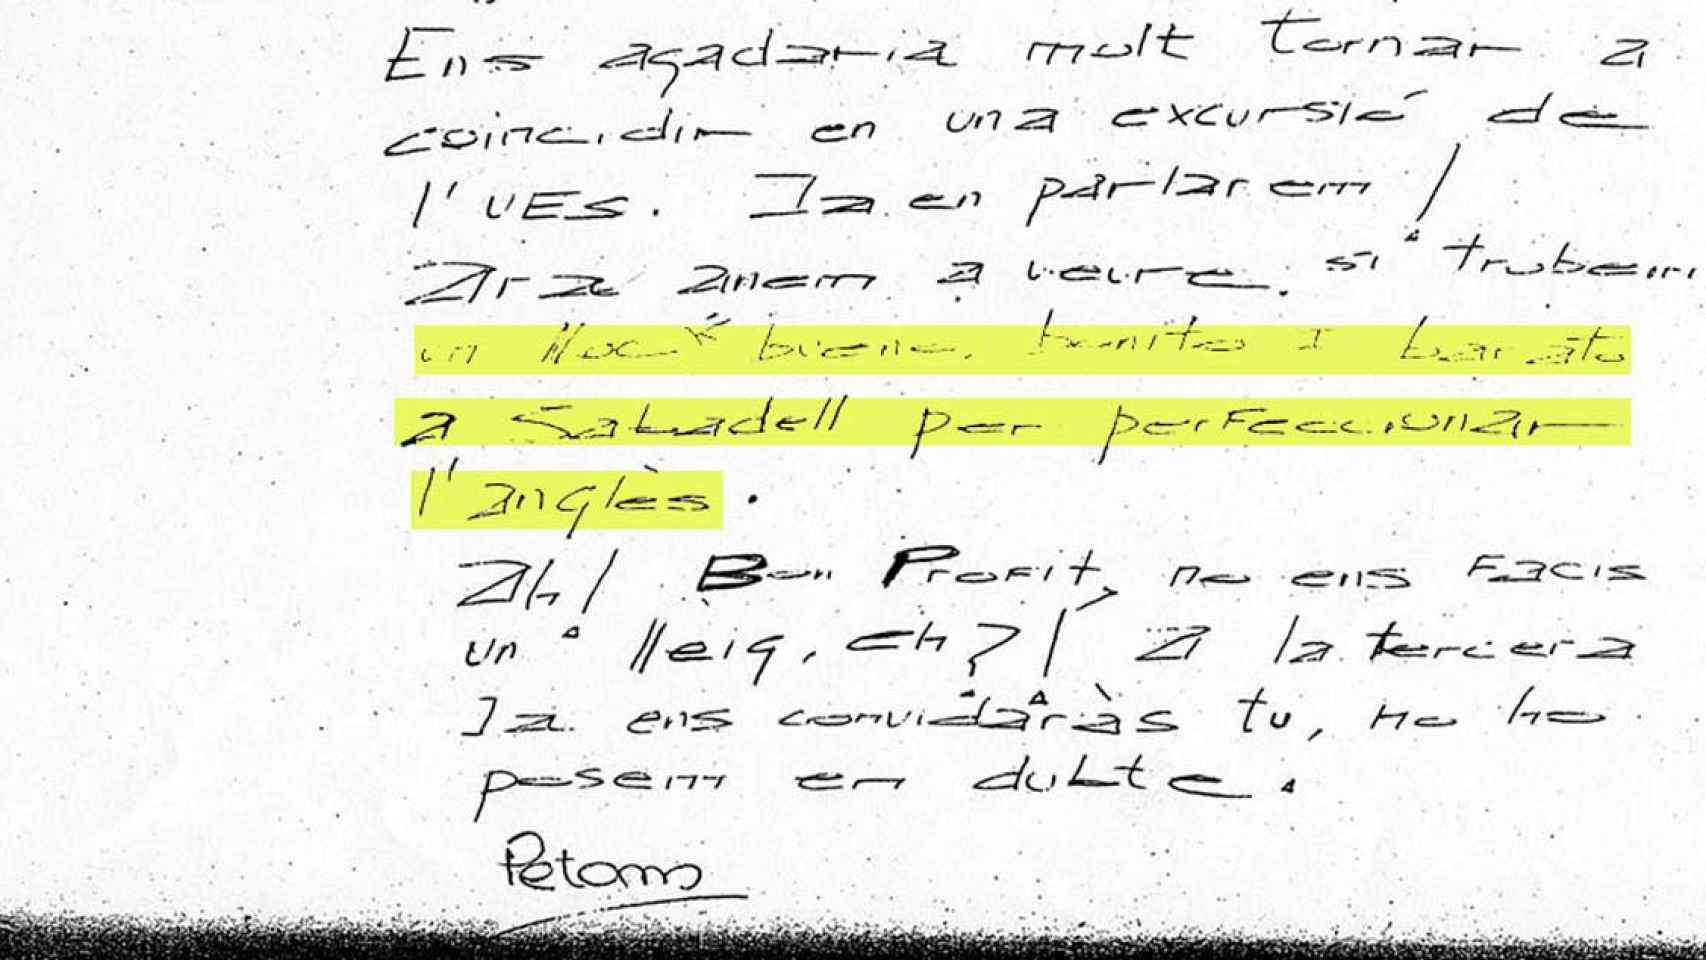 Ens agadaria molt tornar a
coincidir en una excursió de
l'UES. Ja en parlarem!
Ara anem a veure. si trobem
un lloc "bueno, bonito i barato
a Sabadell per perfeccionar
l'anglès.
Ah! Bon Profit, no ens facis
un lleig, eh?! A la tercera
Ja ens convidaràs tu, no ho
posem en dubte.
Petons